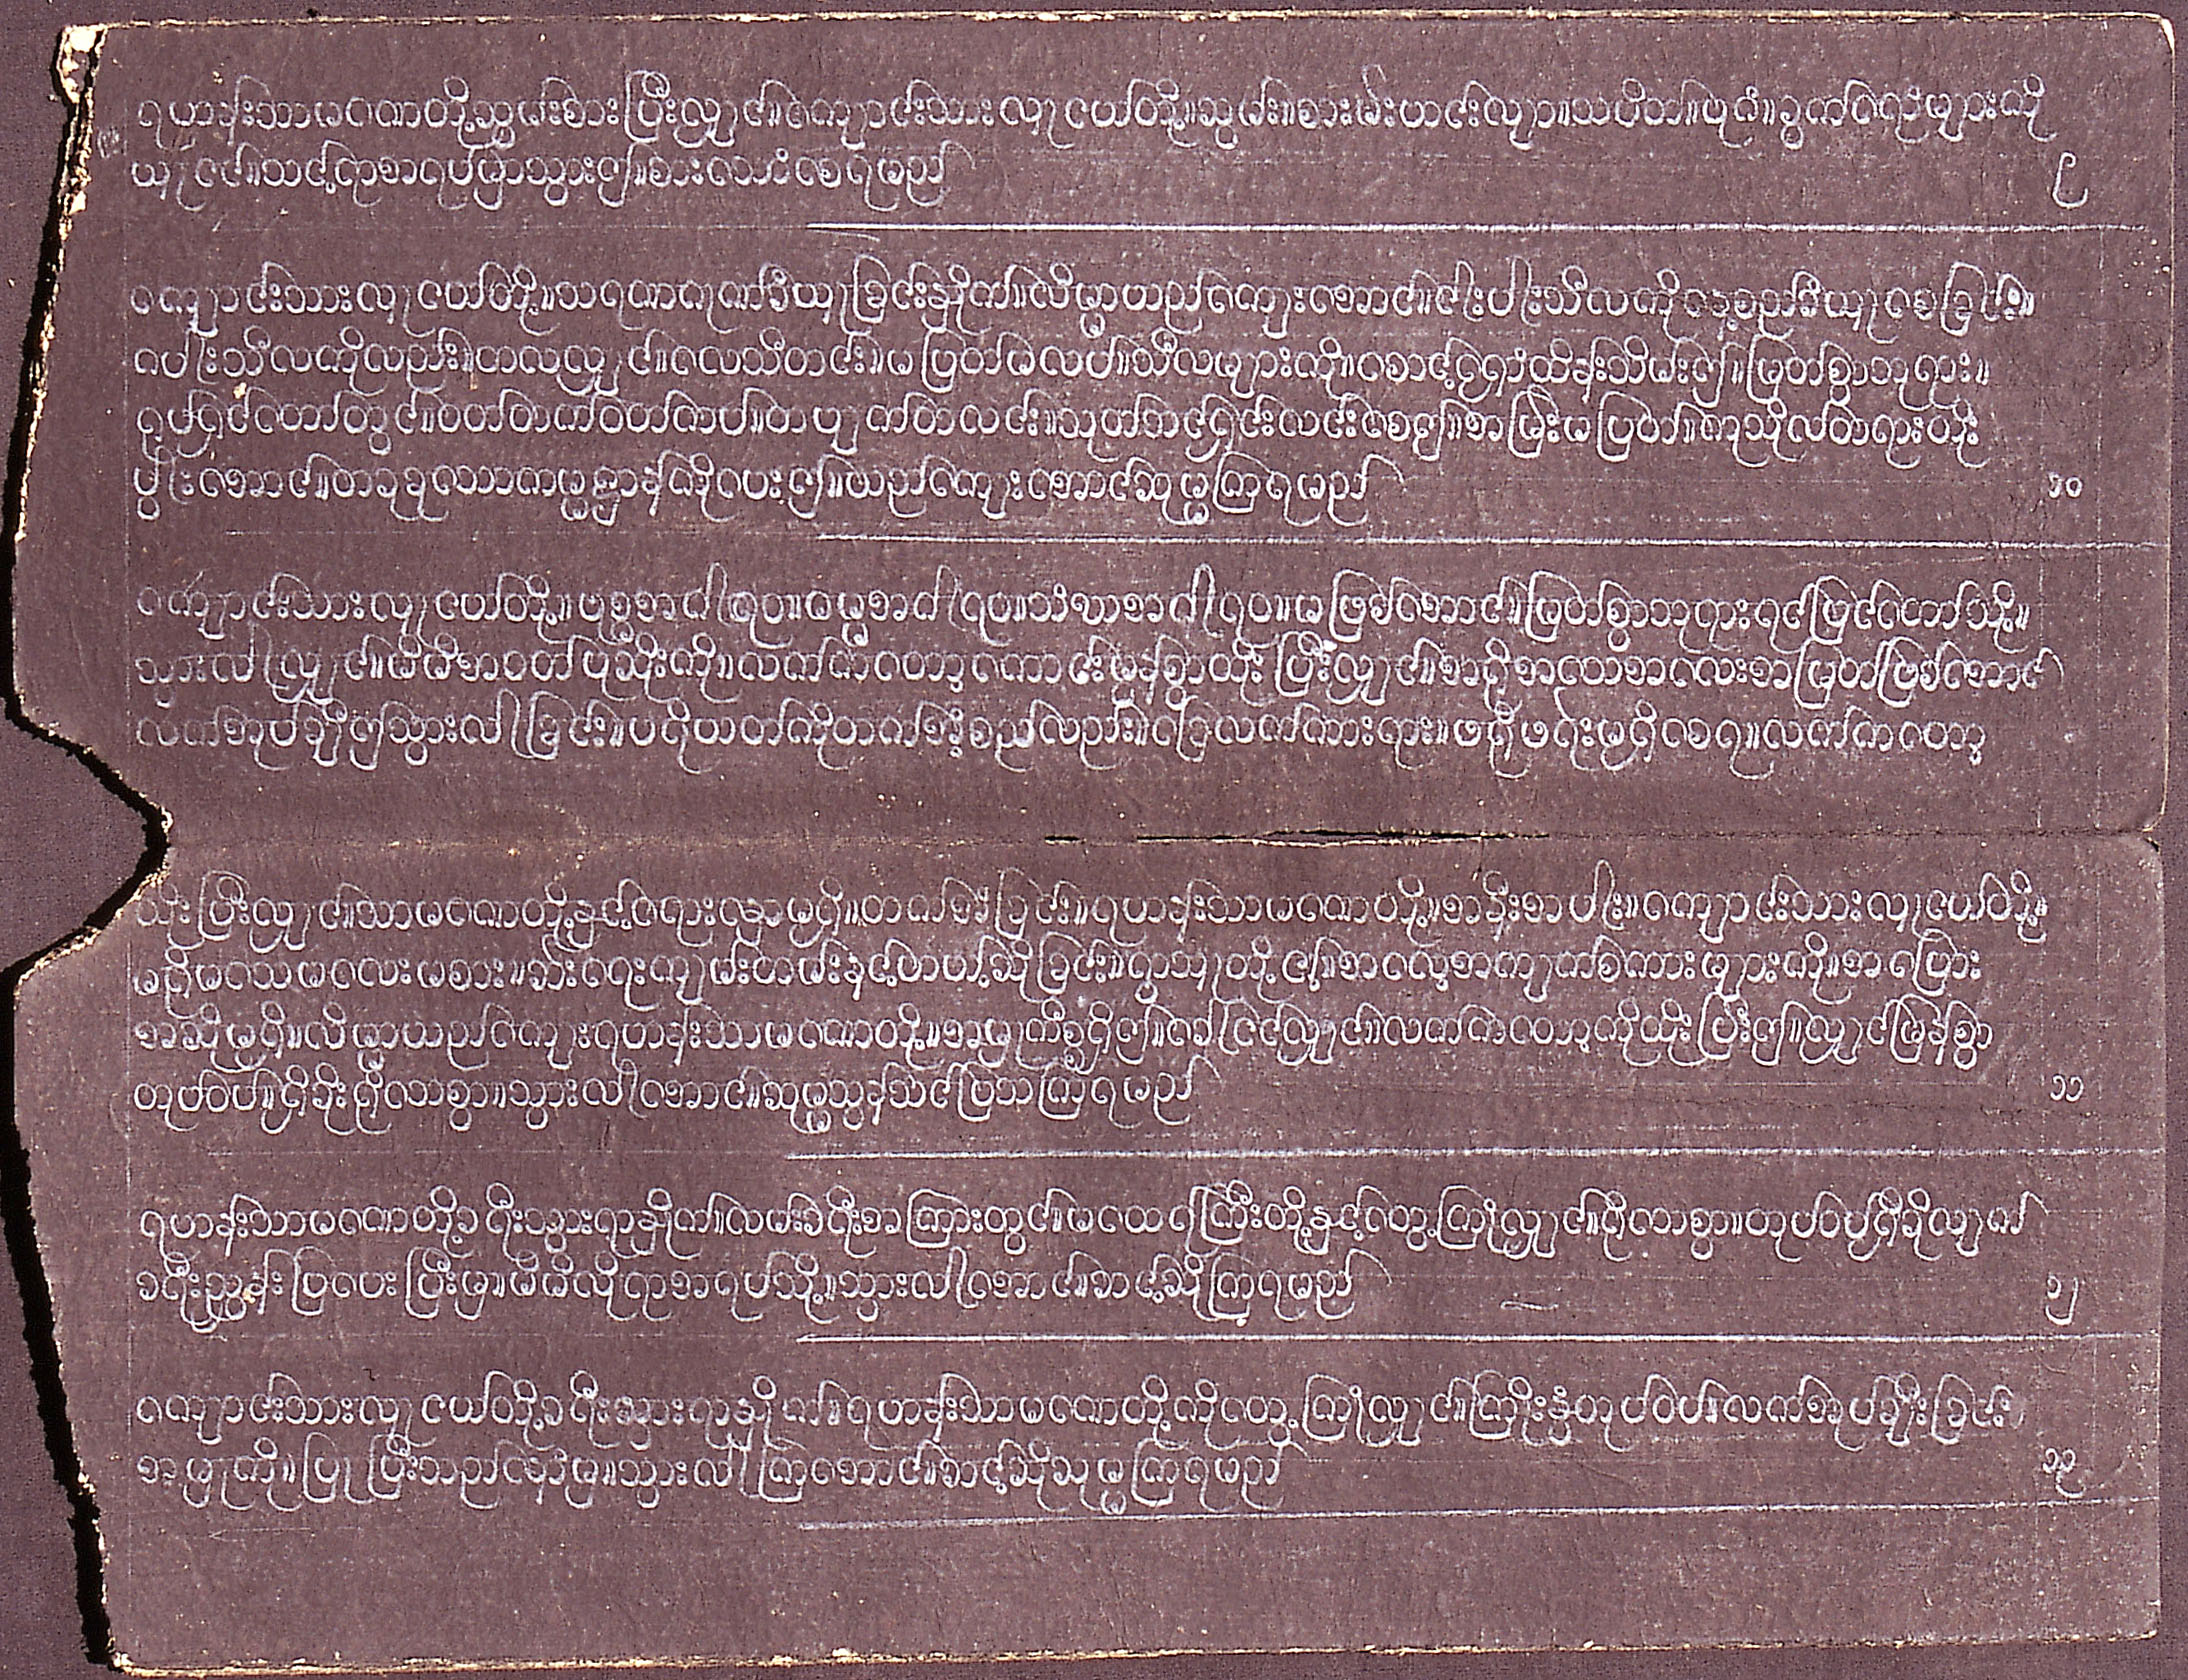 ရဟာန်းသာမဏေတို့ဆွမ်းစားပြီးလျှင်။ကျောင်းသားလူငယ်တို့။ဆွမ်း။စား၊မ်းဟင်းလျာ။သပိတ်။ဗုဂံ။ခွက်ရေအုံများကို
ယူငင်။သင့်ရာအရပ်မှာသွား၍။စားသောက်စေရမည် ၉
ကျောင်းသားလူငယ်တို့။သရဏဂုဏ်ခံယူခြင်းနှိုက်။လိမ္မာတည်ကျေးအောင်။ငါးပါးသီလကိုနေ့စည်ခံယူစေခြင်း။
ပါးသီလကိုလည်း။ငလလျှင်။လေသီတင်း။မပြတ်မလပ်။သီလများကို။စောင့်ရှောက်ထိန်းသိမ်း၍။မြတ်စွာဘုရား။
ရုပ်ရှင်တော်တွင်။ဝတ်တက်ဝတ်ကပ်။တပျက်တလင်း။သုတ်သင်ရှင်းလင်းစေ၍။အမြဲမပြတ်။ကုသိုလ်တရားတိုး
ပွါးအောင်။တခုခုသောကမ္မဋ္ဌာန်ကိုပေး၍။ယဉ်ကျေးအောင်ဆုမ္မကြရမည် ၁၀
ကျောင်းသားလူငယ်တို့။ဗုဒ္ဓအဂါရဝ။ဓမ္မအဂါရဝ။သံဃာအဂါရဝ။မဖြစ်အောင်။မြတ်စွာဘုရားရင်ပြင်တော်သို့။
သွားလါလျှင်။မိမိအဝတ်ပုဆိုးကို။လက်ကတော့ကောင်းမွန်စွာထိုးပြီးလျှင်။အရိုအသေအလေးအမြတ်ဖြစ်အောင်
လက်အုပ်ချီ၍သွားလါခြင်း။ပရိယတ်ကိုတက်အံ့စည်လည်း။ခြေလက်ကားရား။ဖရိုဖရဲမရှိစေရ။လက်ကတော့
ထိုးပြီးလျှင်။သာမဏေတို့နှင့်ဝေးလွာမရှိ။တက်အံခြင်း။ရဟန်းသာမဏေတို့။အနီးအပါး။ကျောင်းသားလူငယ်တို့။
မရိုမသေမလေးမစား။ခါးရေးကျမ်းတမ်းနှင့်ဟယ့်ဆိုခြင်း။ရွာသူတို့၍။အလေ့အကျက်စကားများကို။အပြော
အဆိုမရှိ။လိမ္မာယဉ်ကျေးရဟန်းသာမဏေတို့။အမှုကိစ္စရှိ၍။ခေါ်ငင်လျှင်။လက်ကတော့ကိုထိုးပြီး၍။လျှင်မြန်စွာ
တုပ်ဝပ်။ရှိခိုးရိုသေစွာ။သွားလါအောင်။ဆုမ္မသွန်သင်ပြသကြရမည် ၁၁
ရဟန်းသာမဏေတို့ခရီးသွားရာနှိုက်။လမ်းခရီးအကြားတွင်။မထေရ်ကြီးတို့နှင့်တွေ့ကြုံလျှင်။ရိုသေစွာ။တုပ်ဝပ်ရှိခိုလျက်
ခရီးညွှန်းပြပေးပြီးမှ။မိမိလိုရာအရပ်သို့။သွားလါအောင်။အင့်ဆိုကြရမည် ၁၂
ကျောင်းသားလူငယ်တို့ခရီးသွားရာနှိုက်။ရဟန်းသာမဏေတို့ကိုတွေ့ကြုံလျှင်။ကြိုးနွံတုပ်ဝပ်။လက်အုပ်ချီးခြင်း
အမှုကို။ပြုပြီးသည်နောက်မှ။သွားလါကြအောင်။အင့်ဆိုဆုမ္မကြရမည် ၁၃